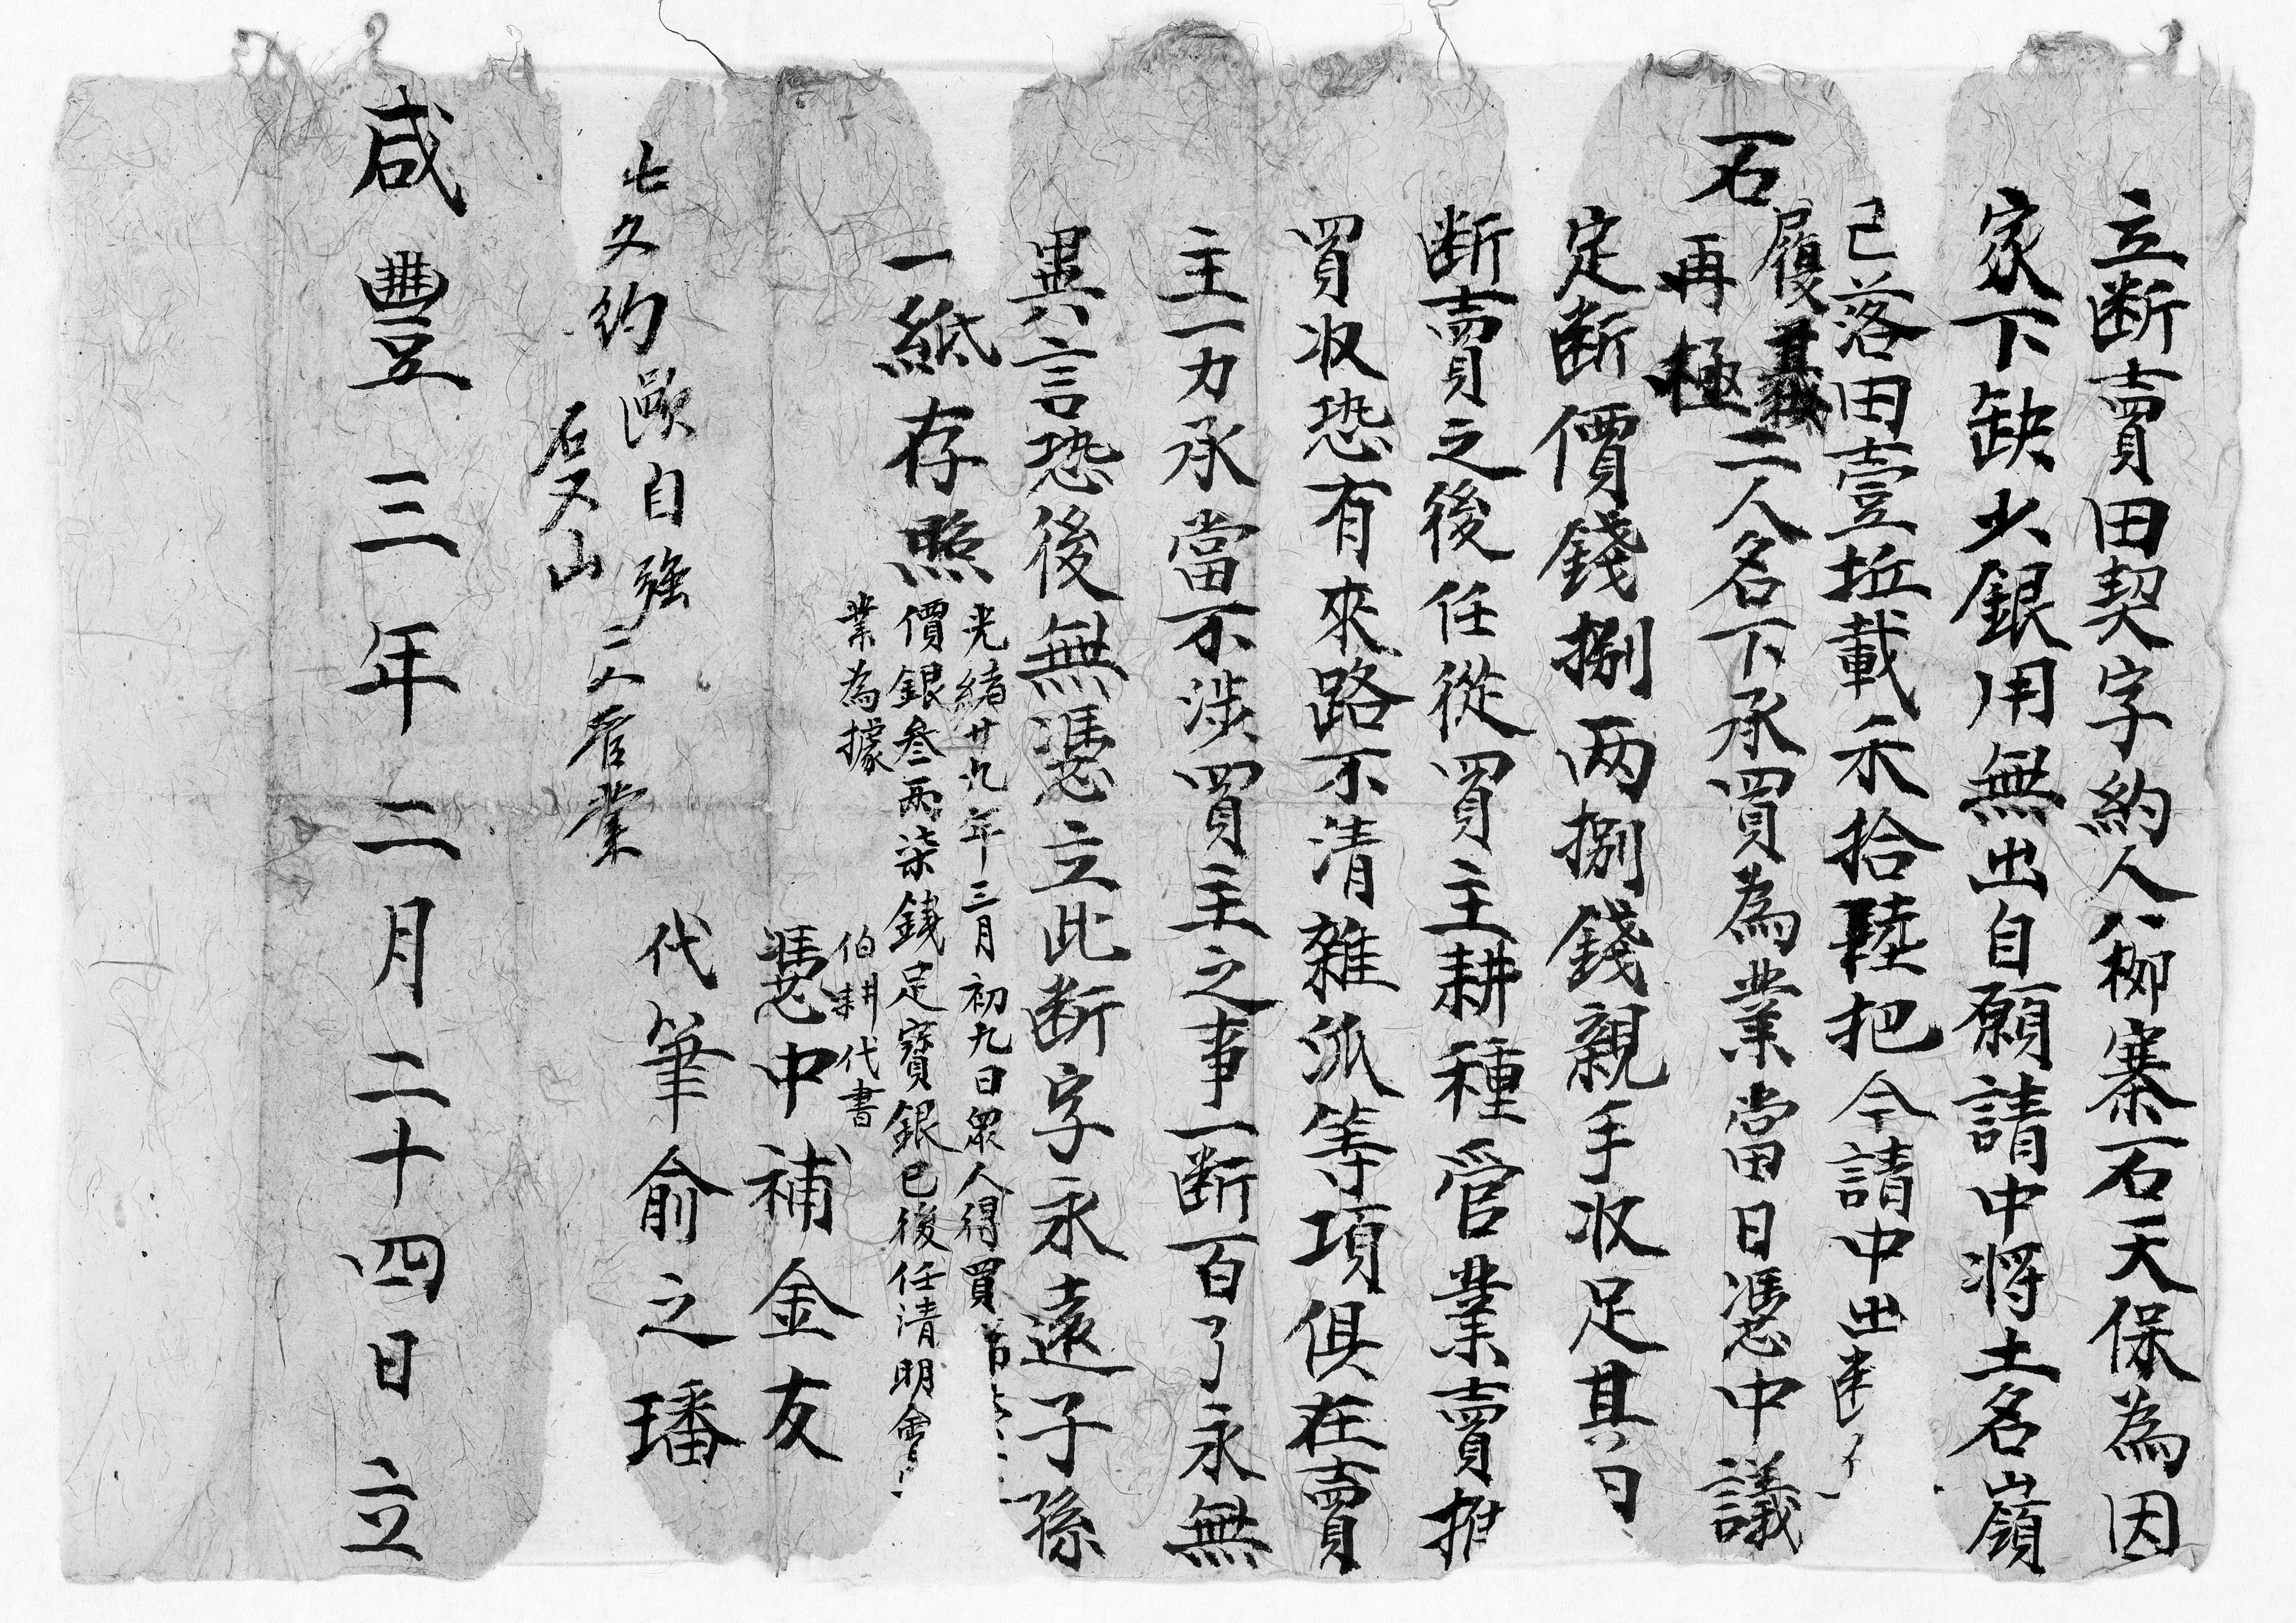 立断賣田契字約人八柳寨石天保為因
家下缺少銀用無出自願請中將土名嶺
己落田壹坵載禾拾陸把今請中出
石履義
再極二人名下承買為業當日憑中議
定断價錢捌両捌錢親手收足其
断賣之後任從買主耕種管業賣推
買收恐有來路不清雜派等項俱在賣
主一力承當不涉買主之事一断百了永無
異言恐後無憑立此断字永遠子孫
一紙存照
光緒廿九年三月初九日眾人得買
價銀叁両柒錢足寳銀已後任清明會
業為據
伯耕代書
憑中補金友
代筆俞之璠
七文約歐自強
石又山
二人管業
咸豐三年二月二十四日立